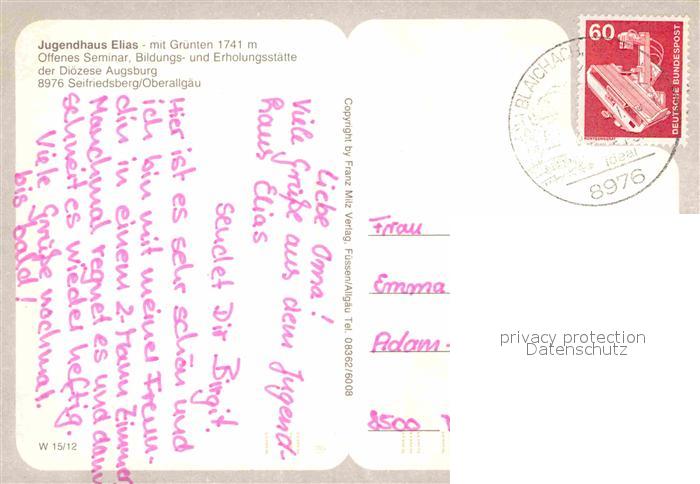 Jugendhaus Elias - mit Grünten 1741 m
Offenes Seminar, Bildungs- und Erholungsstätte
der Diözese Augsburg
8976 Seifriedsberg/Oberallgäu
Liebe Oma!
Viele Grüße aus dem Jugend-
haus Elias
sendet Dir Birgit!
Hier ist es sehr schön und
ich bin mit meiner Freun-
din in einem 2-Mann Zimmer
Manchmal regnet es und dann
schneit es wieder heftig.
Viele Grüße nochmal.
bis bald!
W 15/12
Copyright by Franz Milz Verlag, Füssen/Allgäu Tel. 08362/6008
60
DEUTSCHE BUNDESPOST
BLAICHACH
ideal
8976
Frau
Emma
Adam-
8500
privacy protection
Datenschutz